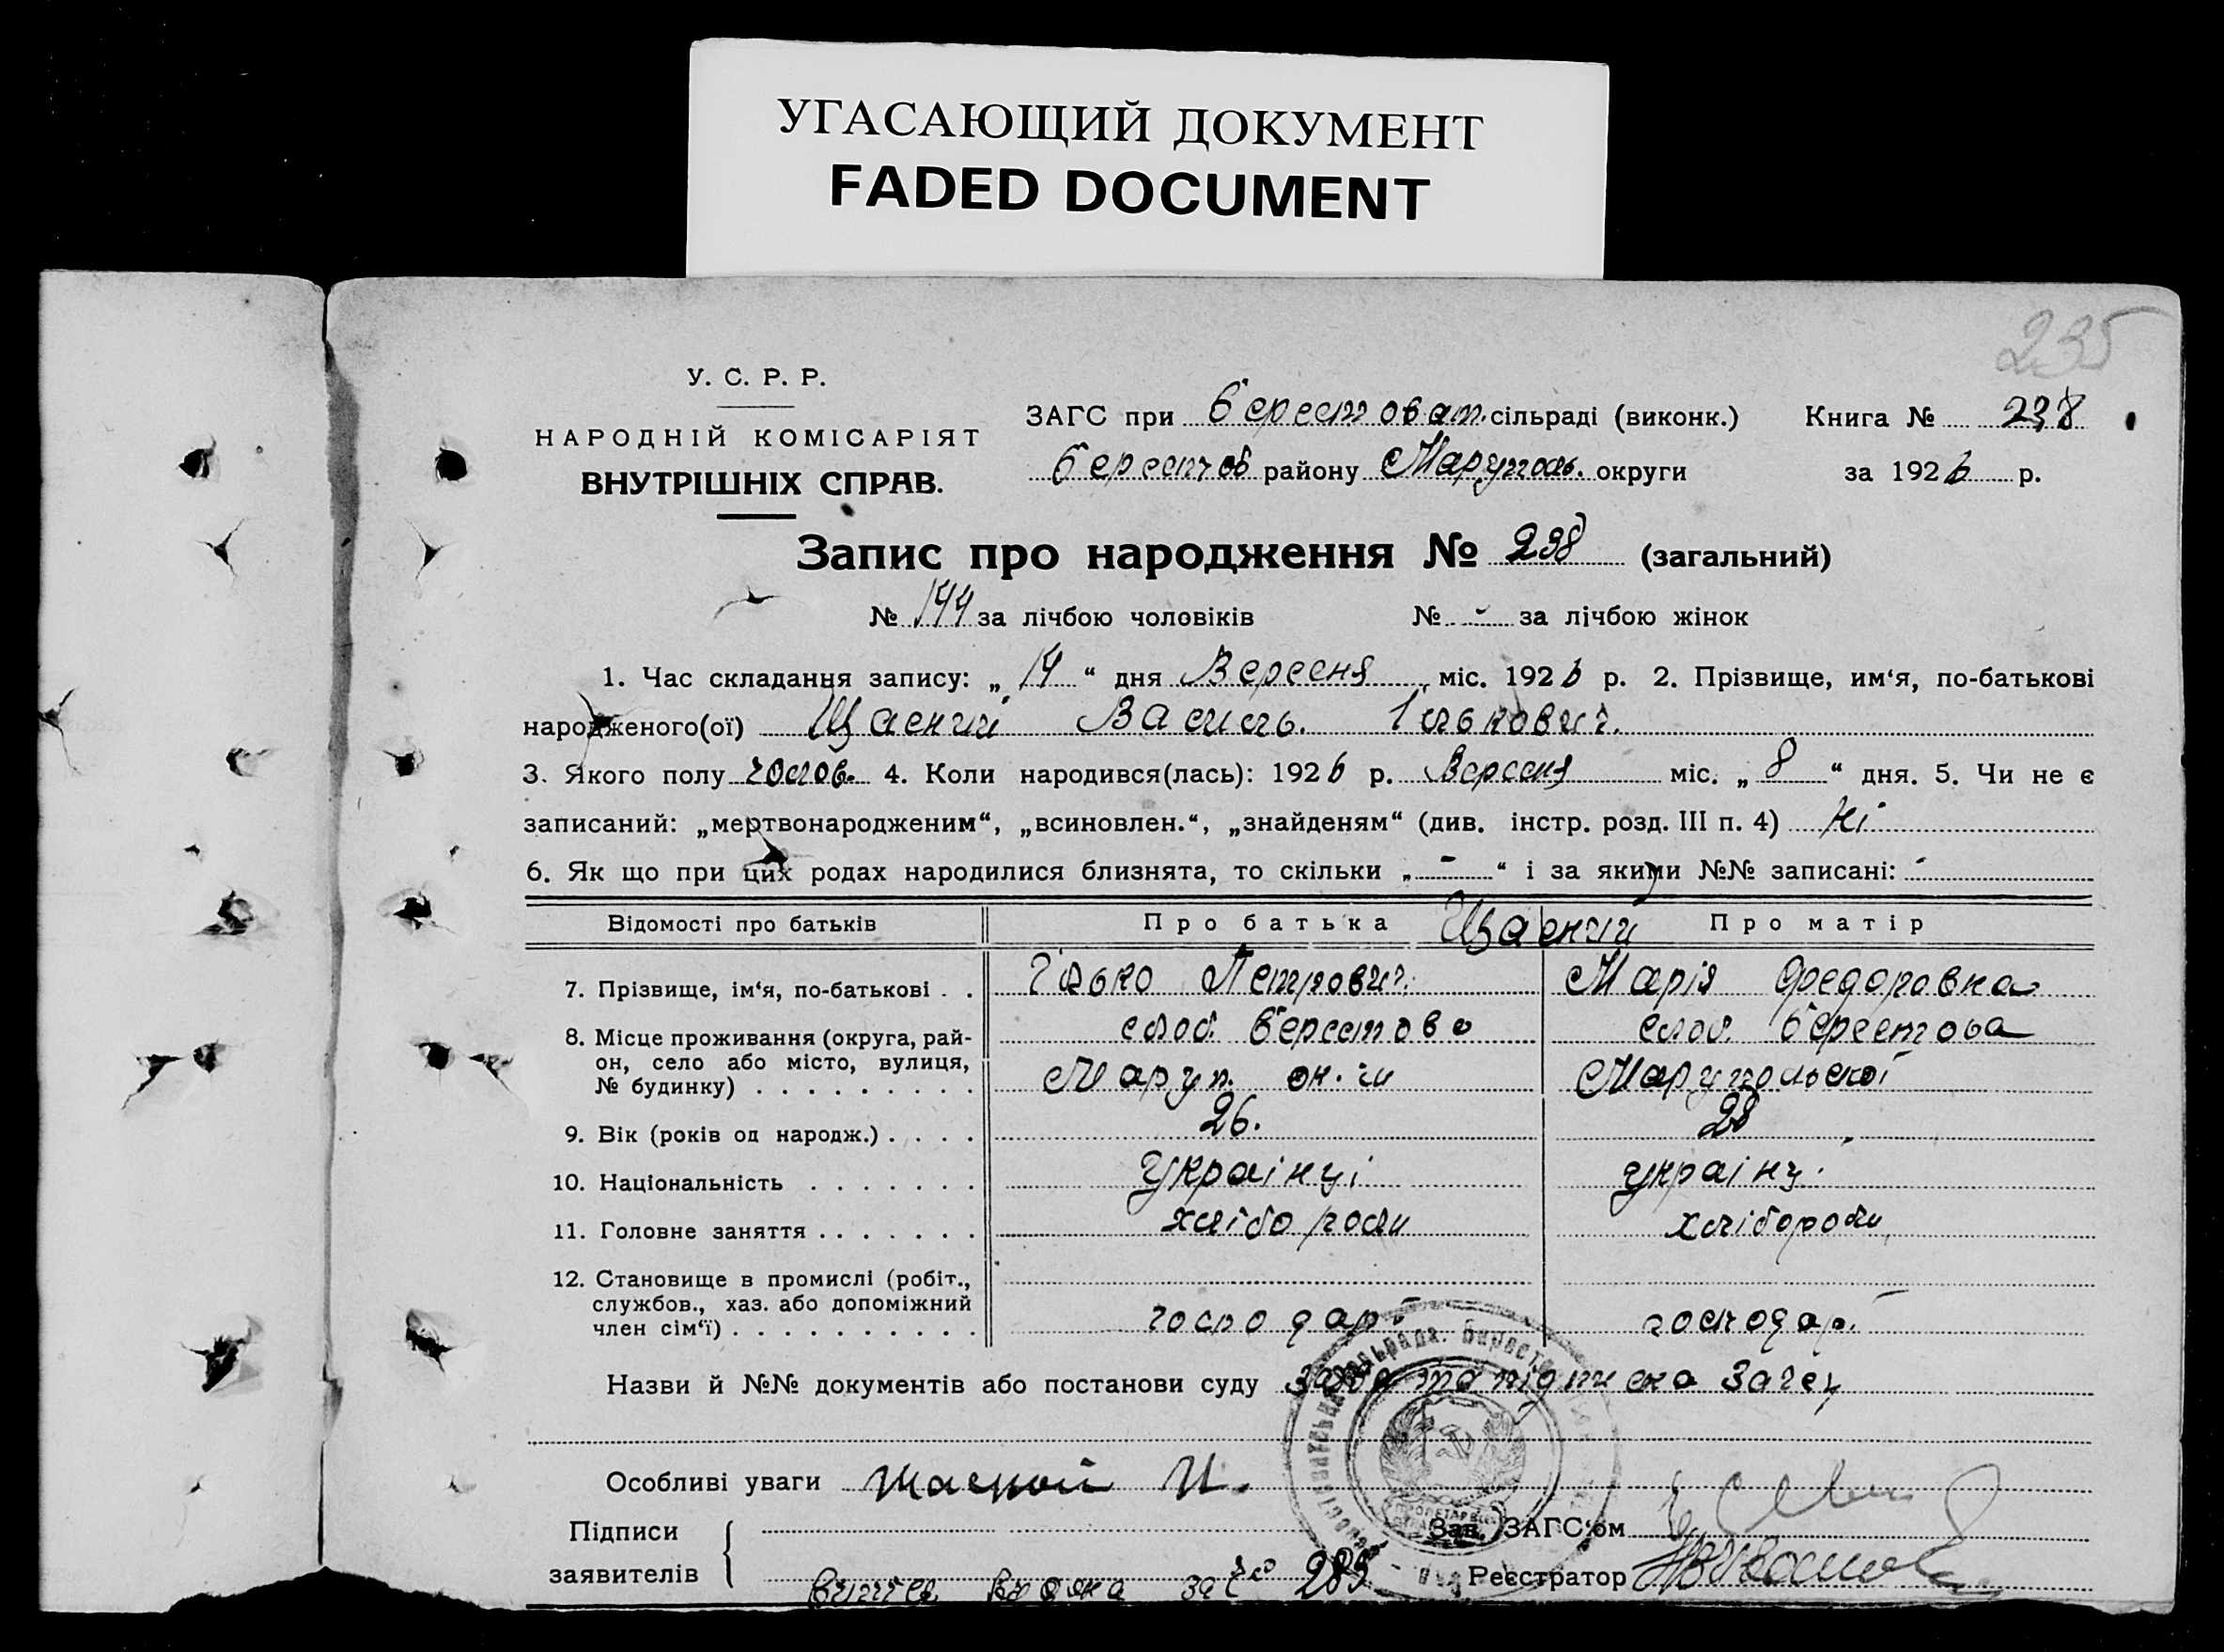 УГАСАЮЩИЙ ДОКУМЕНТ
FADED DOCUMENT
235
У. С. Р. Р.
НАРОДНІЙ КОМІСАРІЯТ
ВНУТРІШНІХ СПРАВ.
ЗАГС при Берестоват. сільраді (виконк.) Книга № 238
Берестов району Маруполь. округи за 1926 р.
Запис про народження № 238 (загальний)
№ 144 за лічбою чоловіків № - за лічбою жінок
1. Час складання запису: „ 14 “ дня Вересня міс. 1926 р. 2. Прізвище, им‘я, по-батькові
народженого(ої) Щасний Василь. Ількович.
3. Якого полу чолов. 4. Коли народився(лась): 1926 р. Вересня міс. „ 8 “ дня. 5. Чи не є
записаний: „мертвонародженим“, „всиновлен.“, „знайденям“ (див. інстр. розд. III п. 4) Ні
6. Як що при цих родах народилися близнята, то скільки „ - “ і за якими №№ записані: -
Відомості про батьків Про батька Щасний Про матір
7. Прізвище, ім‘я, по-батькові . . Ілько Петрович. Марія Федоровна
8. Місце проживання (округа, рай- слоб. Берестово слоб. Берестова
он, село або місто, вулиця,
№ будинку) . . . . . . . . . Маруп. ок. Марупольської
9. Вік (років од народж.) . . . . 26. 28
10. Національність . . . . . . . Українці українц.
11. Головне заняття . . . . . . . хлібороби хлібороби
12. Становище в промислі (робіт.,
службов., хаз. або допоміжний
член сім‘ї) . . . . . . . . . . господарі господар.
Назви й №№ документів або постанови суду Заява та підписка
Особливі уваги Щасной И.
Підписи
заявителів
Зав. ЗАГС‘ом
за № 285 Реєстратор